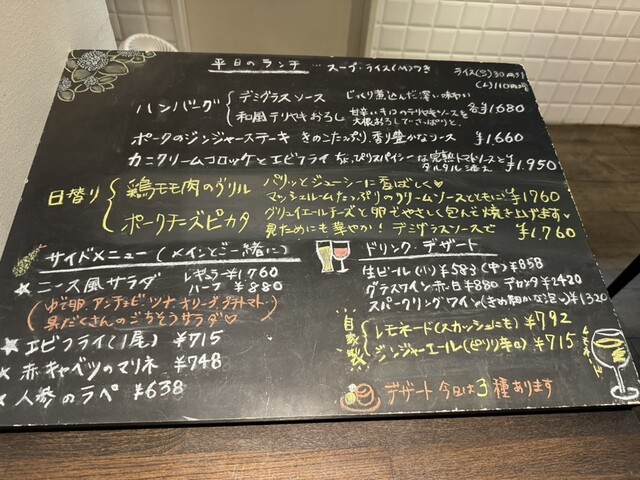 平日のランチ … スープ・ライス(M)つき
ライス(S)30円引
(L)110円増
ハンバーグ
デミグラスソース じっくり煮込んだ深い味わい
和風テリヤキおろし 甘辛いテリヤキソースを
大根おろしでさっぱりと。
各¥1,680
ポークのジンジャーステーキ きのこたっぷり、香り豊かなソース ¥1,660
カニクリームコロッケとエビフライ ちょっぴりスパイシーな完熟トマトソースと
タルタル添え ¥1,950
日替り
鶏モモ肉のグリル パリッとジューシーに香ばしく
マッシュルームたっぷりのクリームソースとともに ¥1760
ポークチーズピカタ グリュイエールチーズと卵でやさしく包んで焼き上げます
見ためにも華やか！デミグラスソースで ¥1,760
サイドメニュー(メインとご一緒に)
★ニース風サラダ レギュラー ¥1,760
ハーフ ¥880
(ゆで卵、アンチョビ、ツナ、オリーブ、プチトマト
具だくさんのごちそうサラダ♡)
★エビフライ(1尾) ¥715
★赤キャベツのマリネ ¥748
★人参のラペ ¥638
ドリンク・デザート
生ビール(小)¥583 (中)¥858
グラスワイン赤・白 ¥880 デカンタ ¥2420
スパークリングワイン(きめ細かな泡) ¥1320
自家製
レモネード(スカッシュにも) ¥792
ジンジャーエール(ピリリ辛口) ¥715
デザート 今日は3種あります